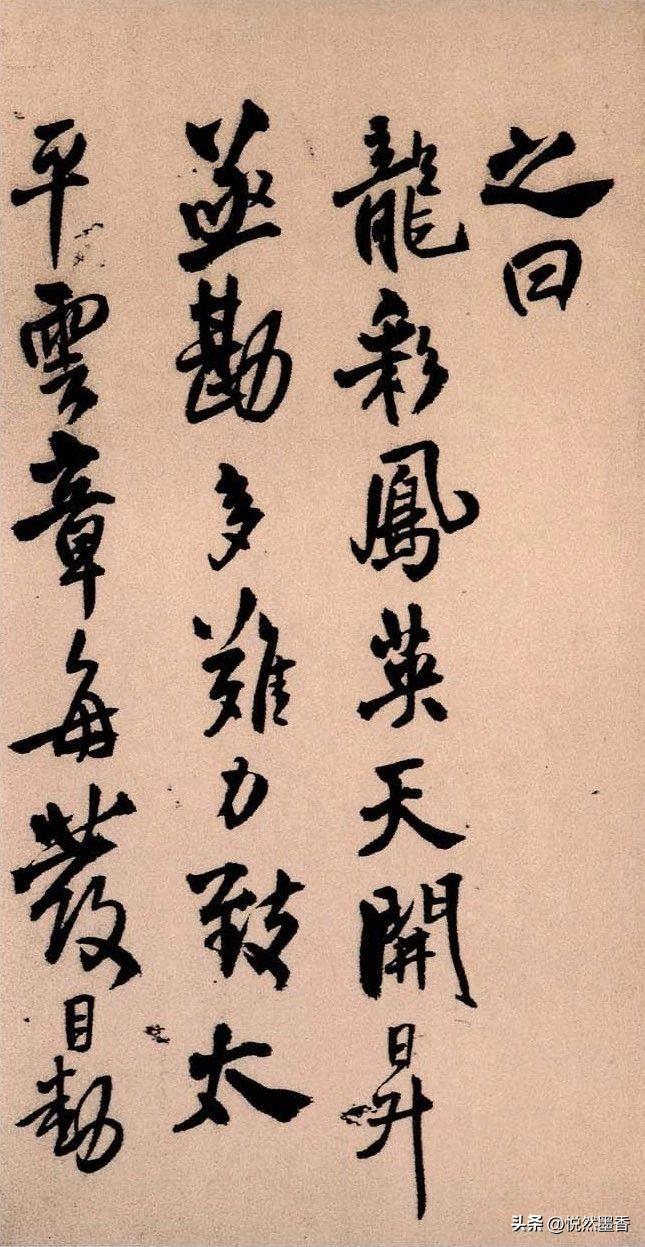 之曰
龍彩鳳英天開日升
亟勘多難力致太
平雲章每發目動
头条 @悦然墨香